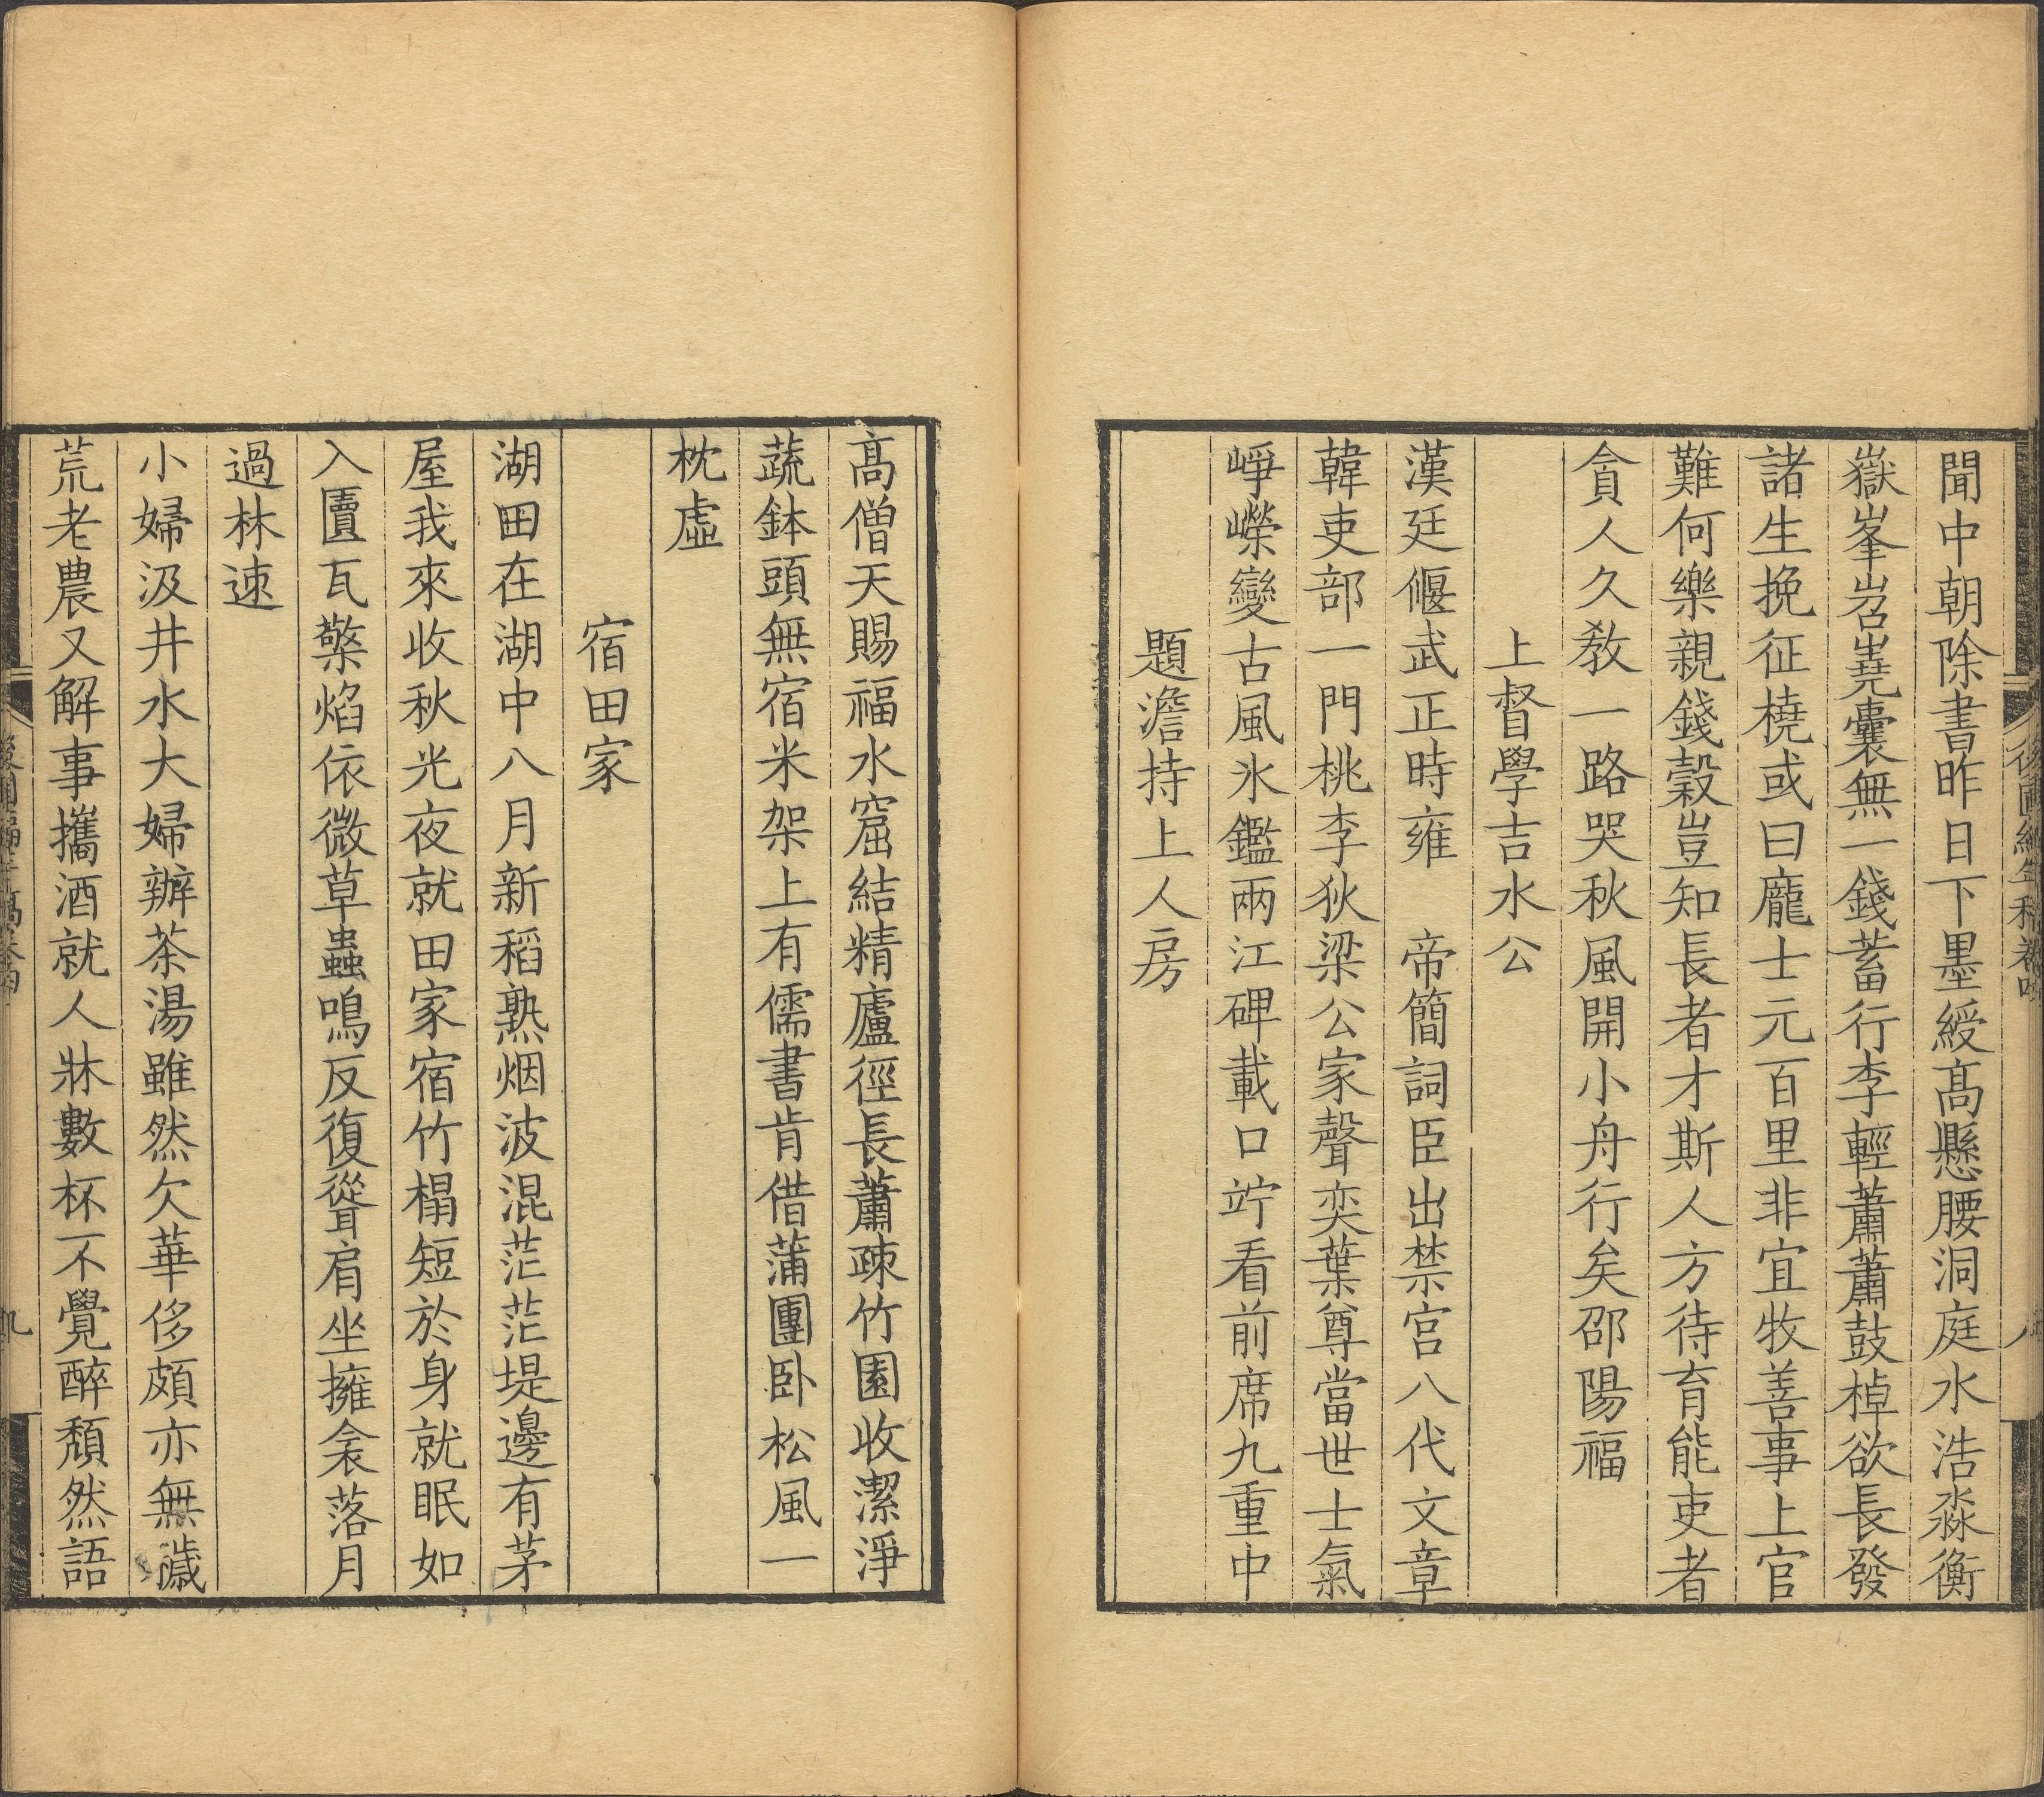 聞中朝除書昨日下墨綬高懸腰洞庭水浩淼衡
嶽峯岧嶤囊無一錢蓄行李輕蕭蕭鼓棹欲長發
諸生挽征橈或曰龐士元百里非宜牧善事上官
難何樂親錢穀豈知長者才斯人方待育能吏者
貪人久教一路哭秋風開小舟行矣邵陽福
上督學吉水公
漢廷偃武正時雍 帝簡詞臣出禁宮八代文章
韓吏部一門桃李狄梁公家聲奕葉尊當世士氣
崢嶸變古風氷鑑兩江碑載口竚看前席九重中
題澹持上人房
高僧天賜福水窟結精廬徑長蕭疎竹園收潔淨
蔬鉢頭無宿米架上有儒書肯借蒲團卧松風一
枕虛
宿田家
湖田在湖中八月新稻熟烟波混茫茫堤邊有茅
屋我來收秋光夜就田家宿竹榻短於身就眠如
入匵瓦檠焰依微草蟲鳴反復聳肩坐擁衾落月
過林速
小婦汲井水大婦辦茶湯雖然欠華侈頗亦無濊
荒老農又解事攜酒就人牀數杯不覺醉頹然語
八
九